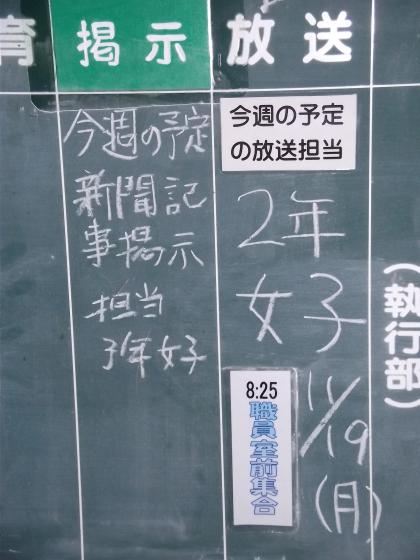 育
掲示
今週の予定
新聞記
事掲示
担当
年女子
放送
今週の予定
の放送担当
2年
女子
8:25
職員室前集合
11/19
(月)
(執行部)